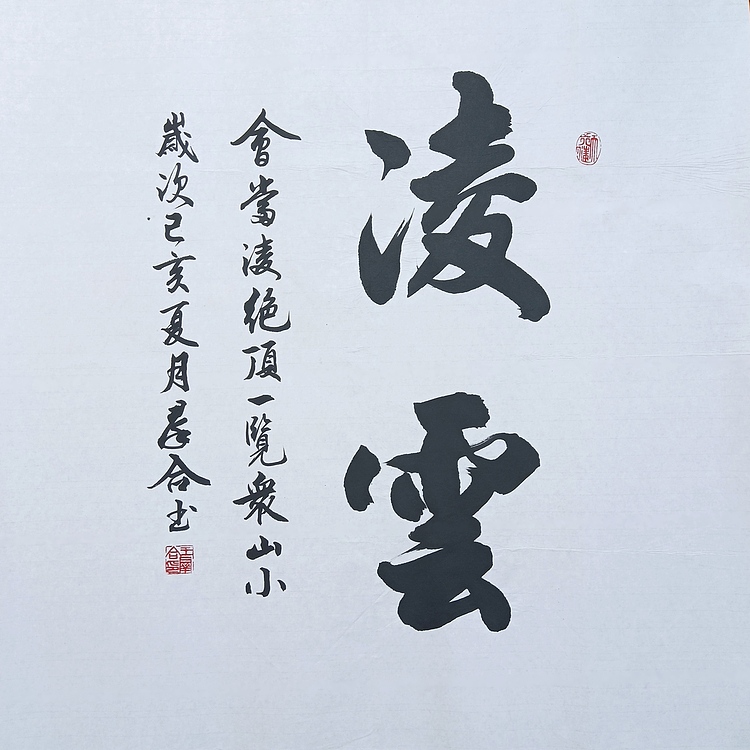 凌雲
會當凌絕頂一覽衆山小
歲次己亥夏月群合书